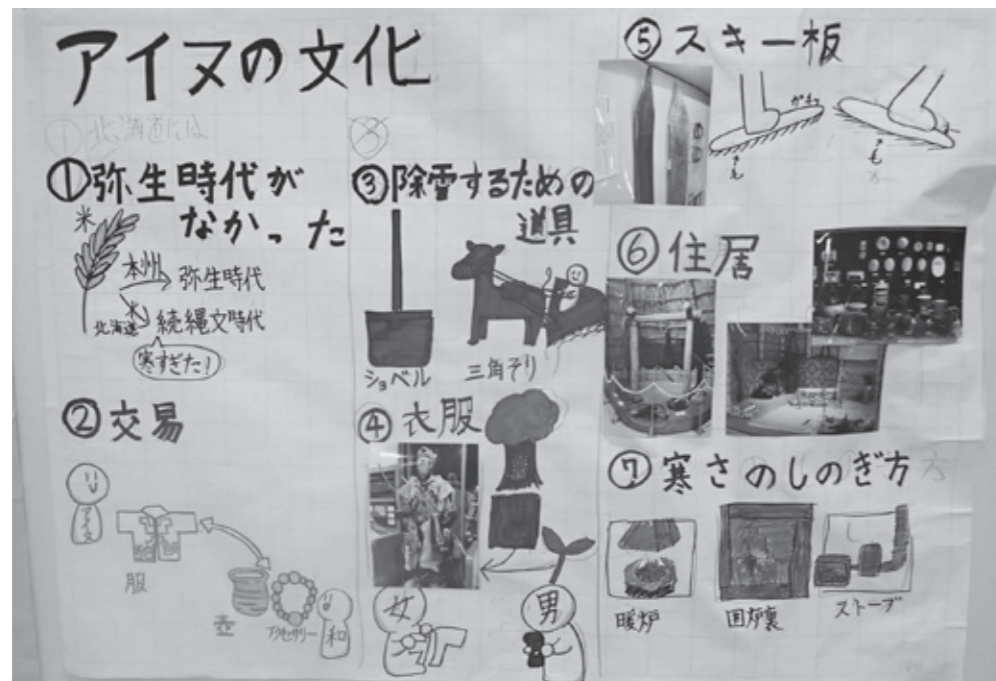 アイヌの文化
①北海道には
①弥生時代が
なかった
米
本州
弥生時代
米
北海道
続縄文時代
寒すぎた！
②交易
アイヌ
服
壺
アクセサリー
和
③
③除雪するための
道具
ショベル
三角そり
④衣服
女
男
⑤スキー板
⑥住居
⑦寒さのしのぎ方
方
暖炉
囲炉裏
ストーブ